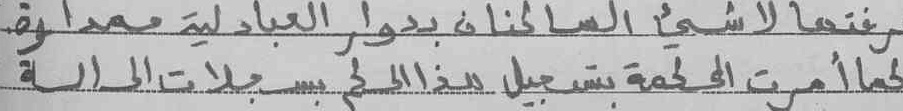 رفتها لاشيئ الساكنان بدوار العبادلية
كما أمرت المحكمة بتسجيل هذا الحكم بسجلات الحالة